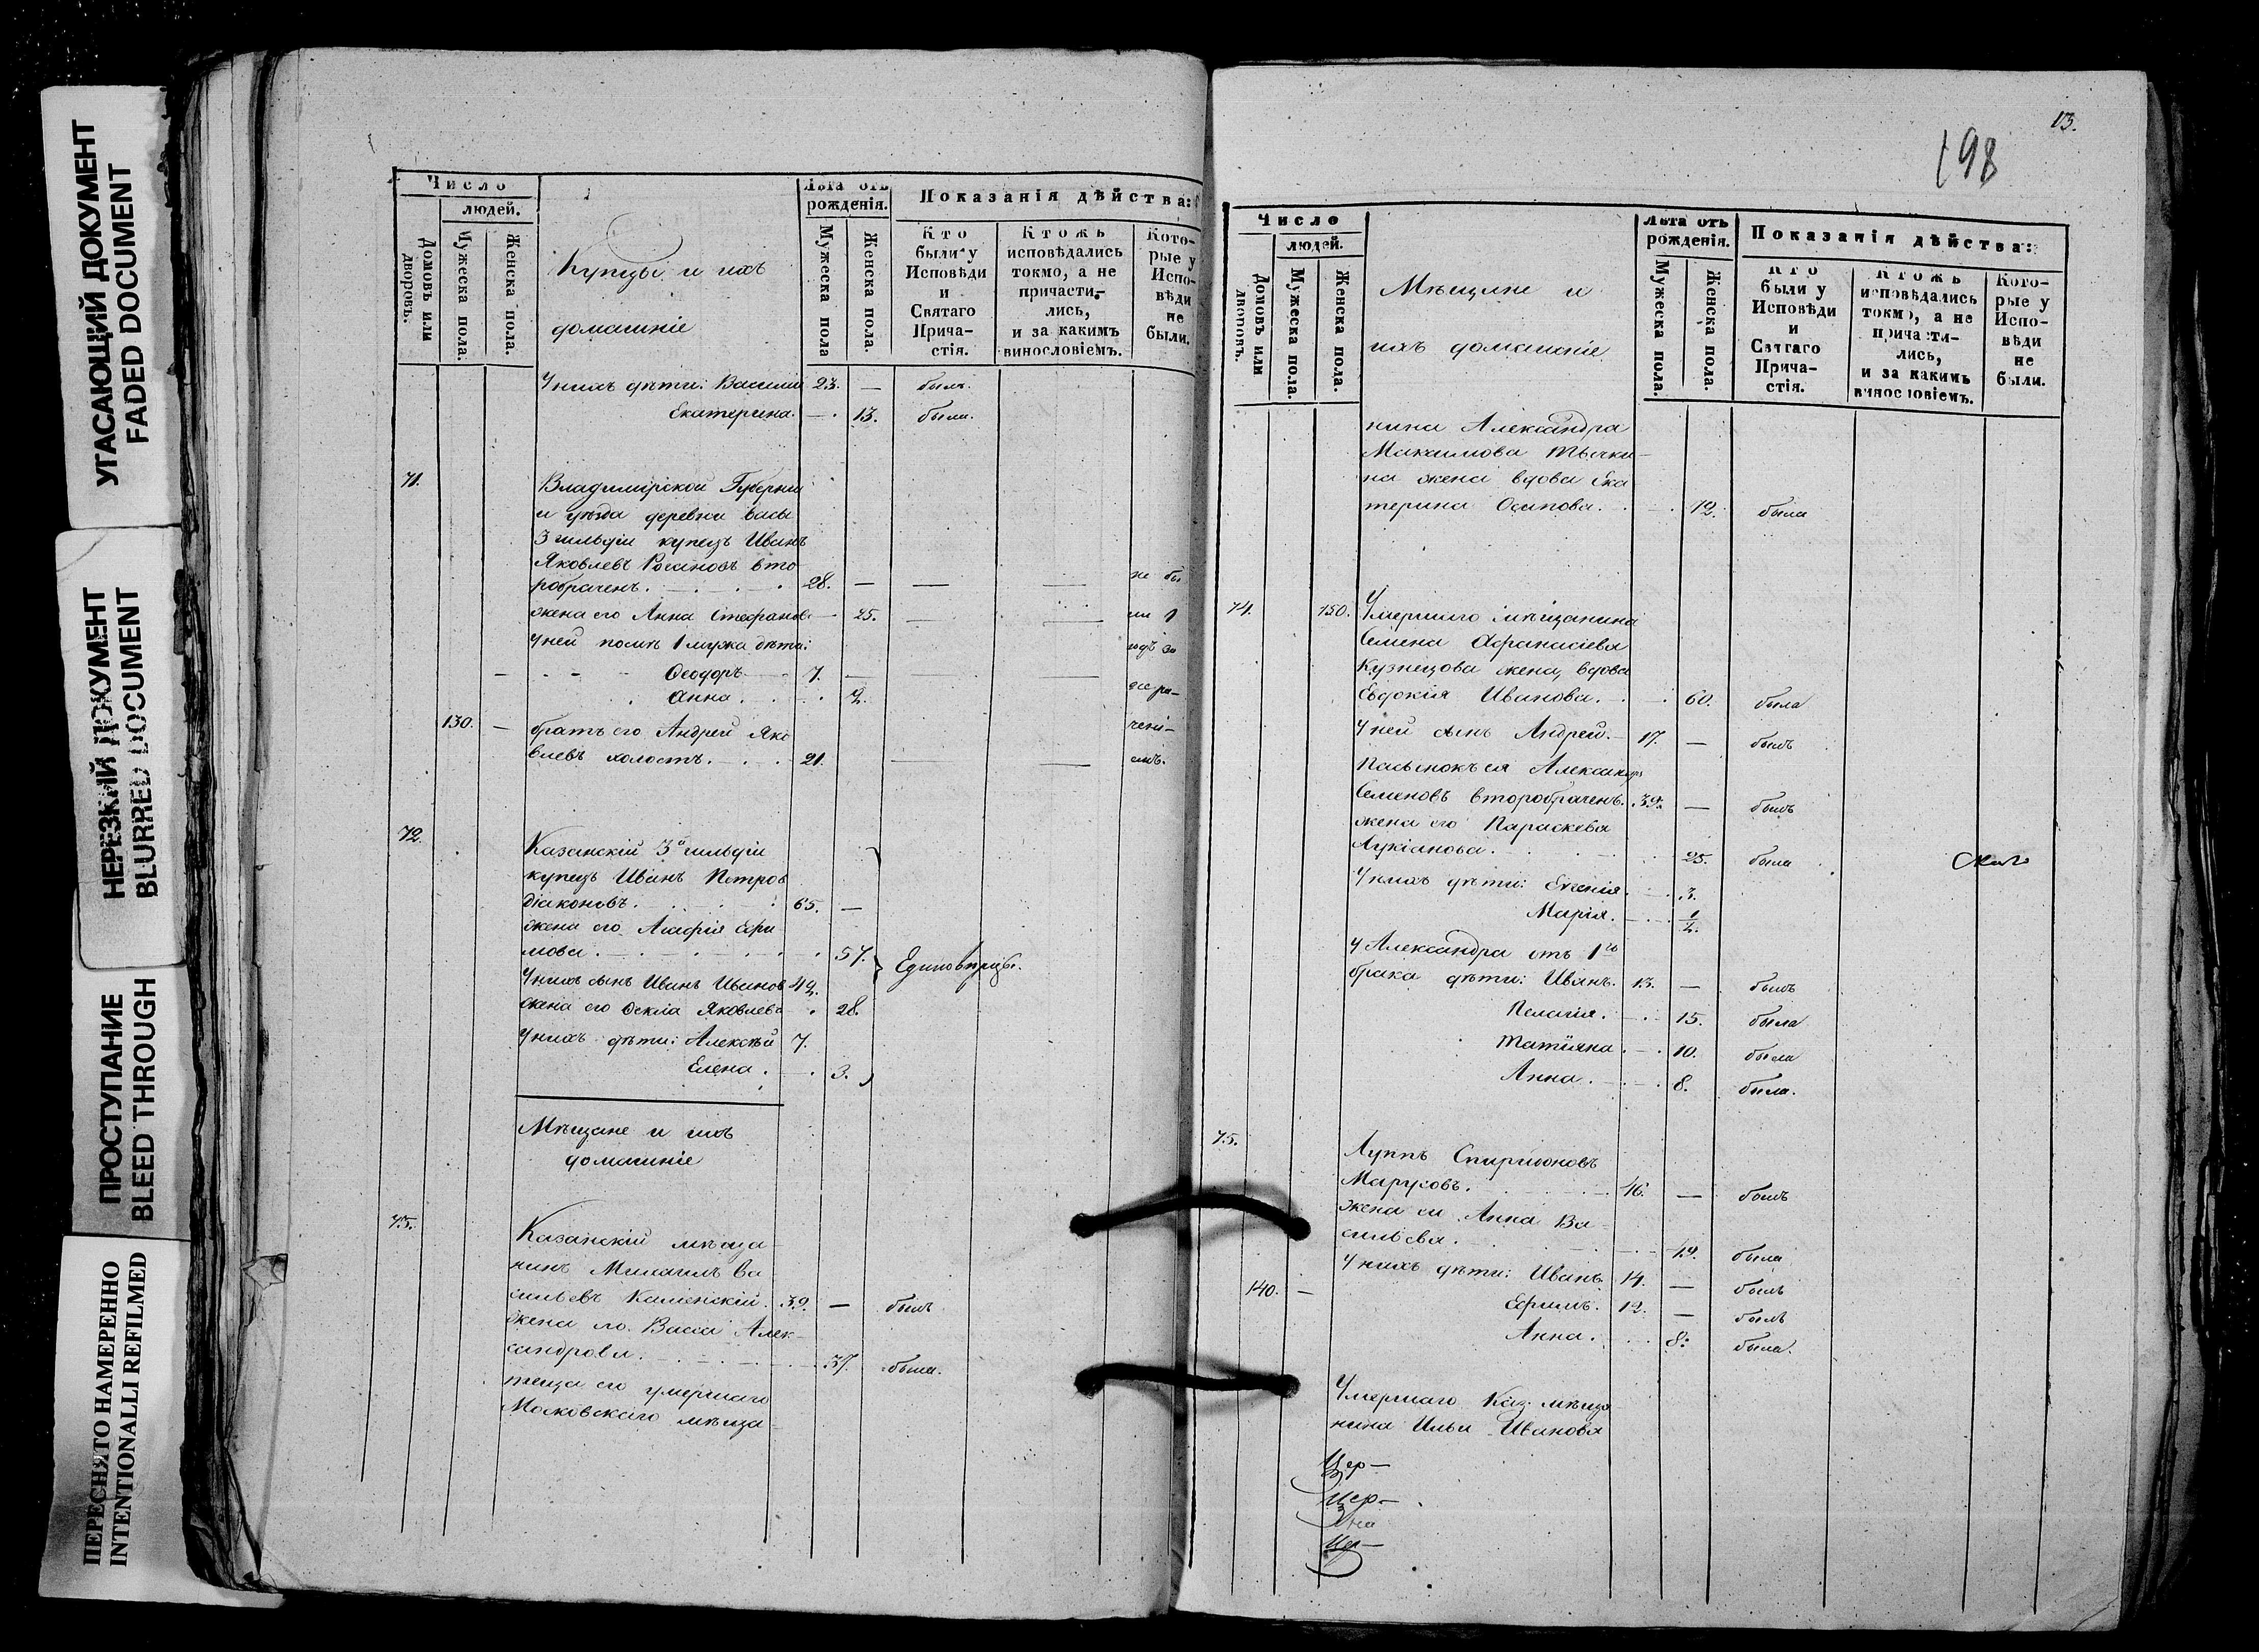 УГАСАЮЩИЙ ДОКУМЕНТ
FADED DOCUMENT
НЕРЕЗКИЙ ДОКУМЕНТ
BLURRED DOCUMENT
ПРОСТУПАНИЕ
BLEED THROUGH
ПЕРЕСНЯТО НАМЕРЕННО
INTENTIONALLI REFILMED
Число
людей.
Домовъ или дворовъ.
Мужеска пола.
Женска пола.
Купцы и ихъ
домашніе
Лѣта отъ
рожденія.
Мужеска пола
Женска пола.
Показанія дѣйства:
Кто
были у
Исповѣди
и
Святаго
Прича-
стія.
Ктожъ
исповѣдались
токмо, а не
причасти-
лись,
и за какимъ
винословіемъ.
Кото-
рые у
Испо-
вѣди
не
были.
У нихъ дѣти: Василий 23. — былъ.
Екатерина. — 13. была.
71. Владимірской Губерніи
и уѣзда деревни
3 гильдіи купецъ Иванъ
Яковлевъ вто
робраченъ. 28. — — — не бы
жена его Анна Стефанов. — 25. — — ли
У ней помъ 1 мужа дѣти:
Ѳеодоръ 7. — —
Анна. 2.
130. — братъ его Андрей Яко
влевъ холостъ. 21. — —
72. Казанскій 3й гильдіи
купецъ Иванъ Петров
Діаконовъ. 65. —
жена его Агафія Ефи
мова. 57. Единовѣрцы.
У нихъ сынъ Иванъ Иванов 42.
жена его Ѳекла Яковлева 28.
У нихъ дѣти: Алексѣй 7.
Елена. 3.
Мѣщане и ихъ
домашніе
73. Казанскій мѣща-
нинъ Михаилъ Ва
сильевъ Каменскій. 39. — былъ
жена его Васса Алек-
сандрова. 37. была.
теща его умершаго
Московскаго мѣща-
13.
198
Число
людей.
Домовъ или дворовъ.
Мужеска пола.
Женска пола.
Мѣщане и
ихъ домашніе
Лѣта отъ
рожденія.
Мужеска пола.
Женска пола.
Показанія дѣйства:
Кто
были у
Исповѣди
и
Святаго
Прича-
стія.
Ктожъ
исповѣдались
токмо, а не
причасти-
лись,
и за какимъ
винословіемъ.
Кото-
рые у
Испо-
вѣди
не
были.
нина Александра
Максимова Тычки-
на жена вдова Ека
терина Осипова. 72. была
74. 150. Умершаго мѣщанина
Семена Афанасіева
Кузнецова жена, вдова
Евдокія Иванова. 60. была
У ней сынъ Андрей. 17. — былъ
Пасынокъ ея Александръ
Семеновъ второбраченъ. 39. — былъ
жена его Параскева
Лукіанова. 25. была
У нихъ дѣти: Евгенія. 3.
Марія. 1/2.
У Александра отъ 1го
брака дѣти: Иванъ. 13. — былъ
Пелагія. 15. была
Татіяна 10. была
Анна. 8. была.
75. Луппъ Спиридоновъ
Маруковъ. 46. — былъ
жена его Анна Ва
сильева. 42. была
У нихъ дѣти: Иванъ 14. — былъ
140. — Ефимъ. 12. — былъ
Анна. 8. была.
Умершаго Каз. мѣща
нина Ильи Иванова